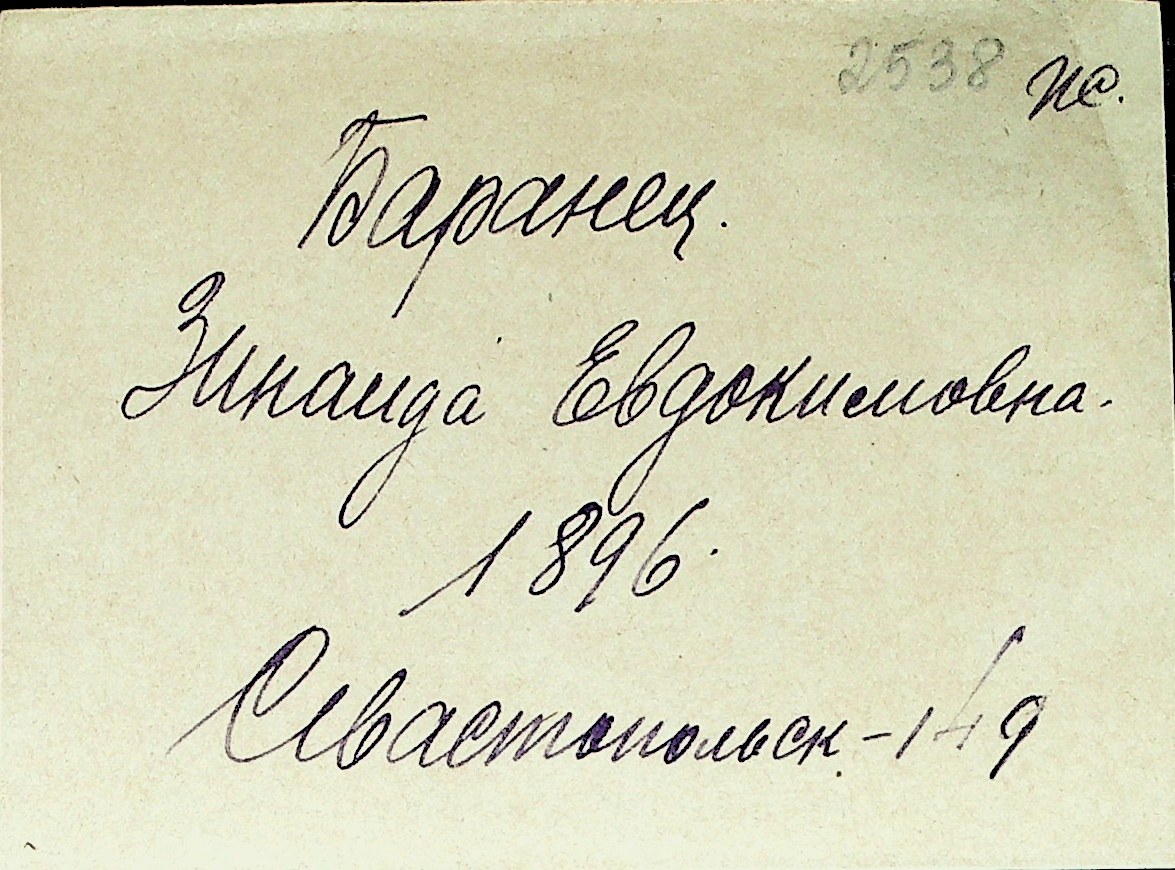 2538 ис.
Баранец.
Зинаида Евдокимовна.
1896.
Севастопольск. - 149